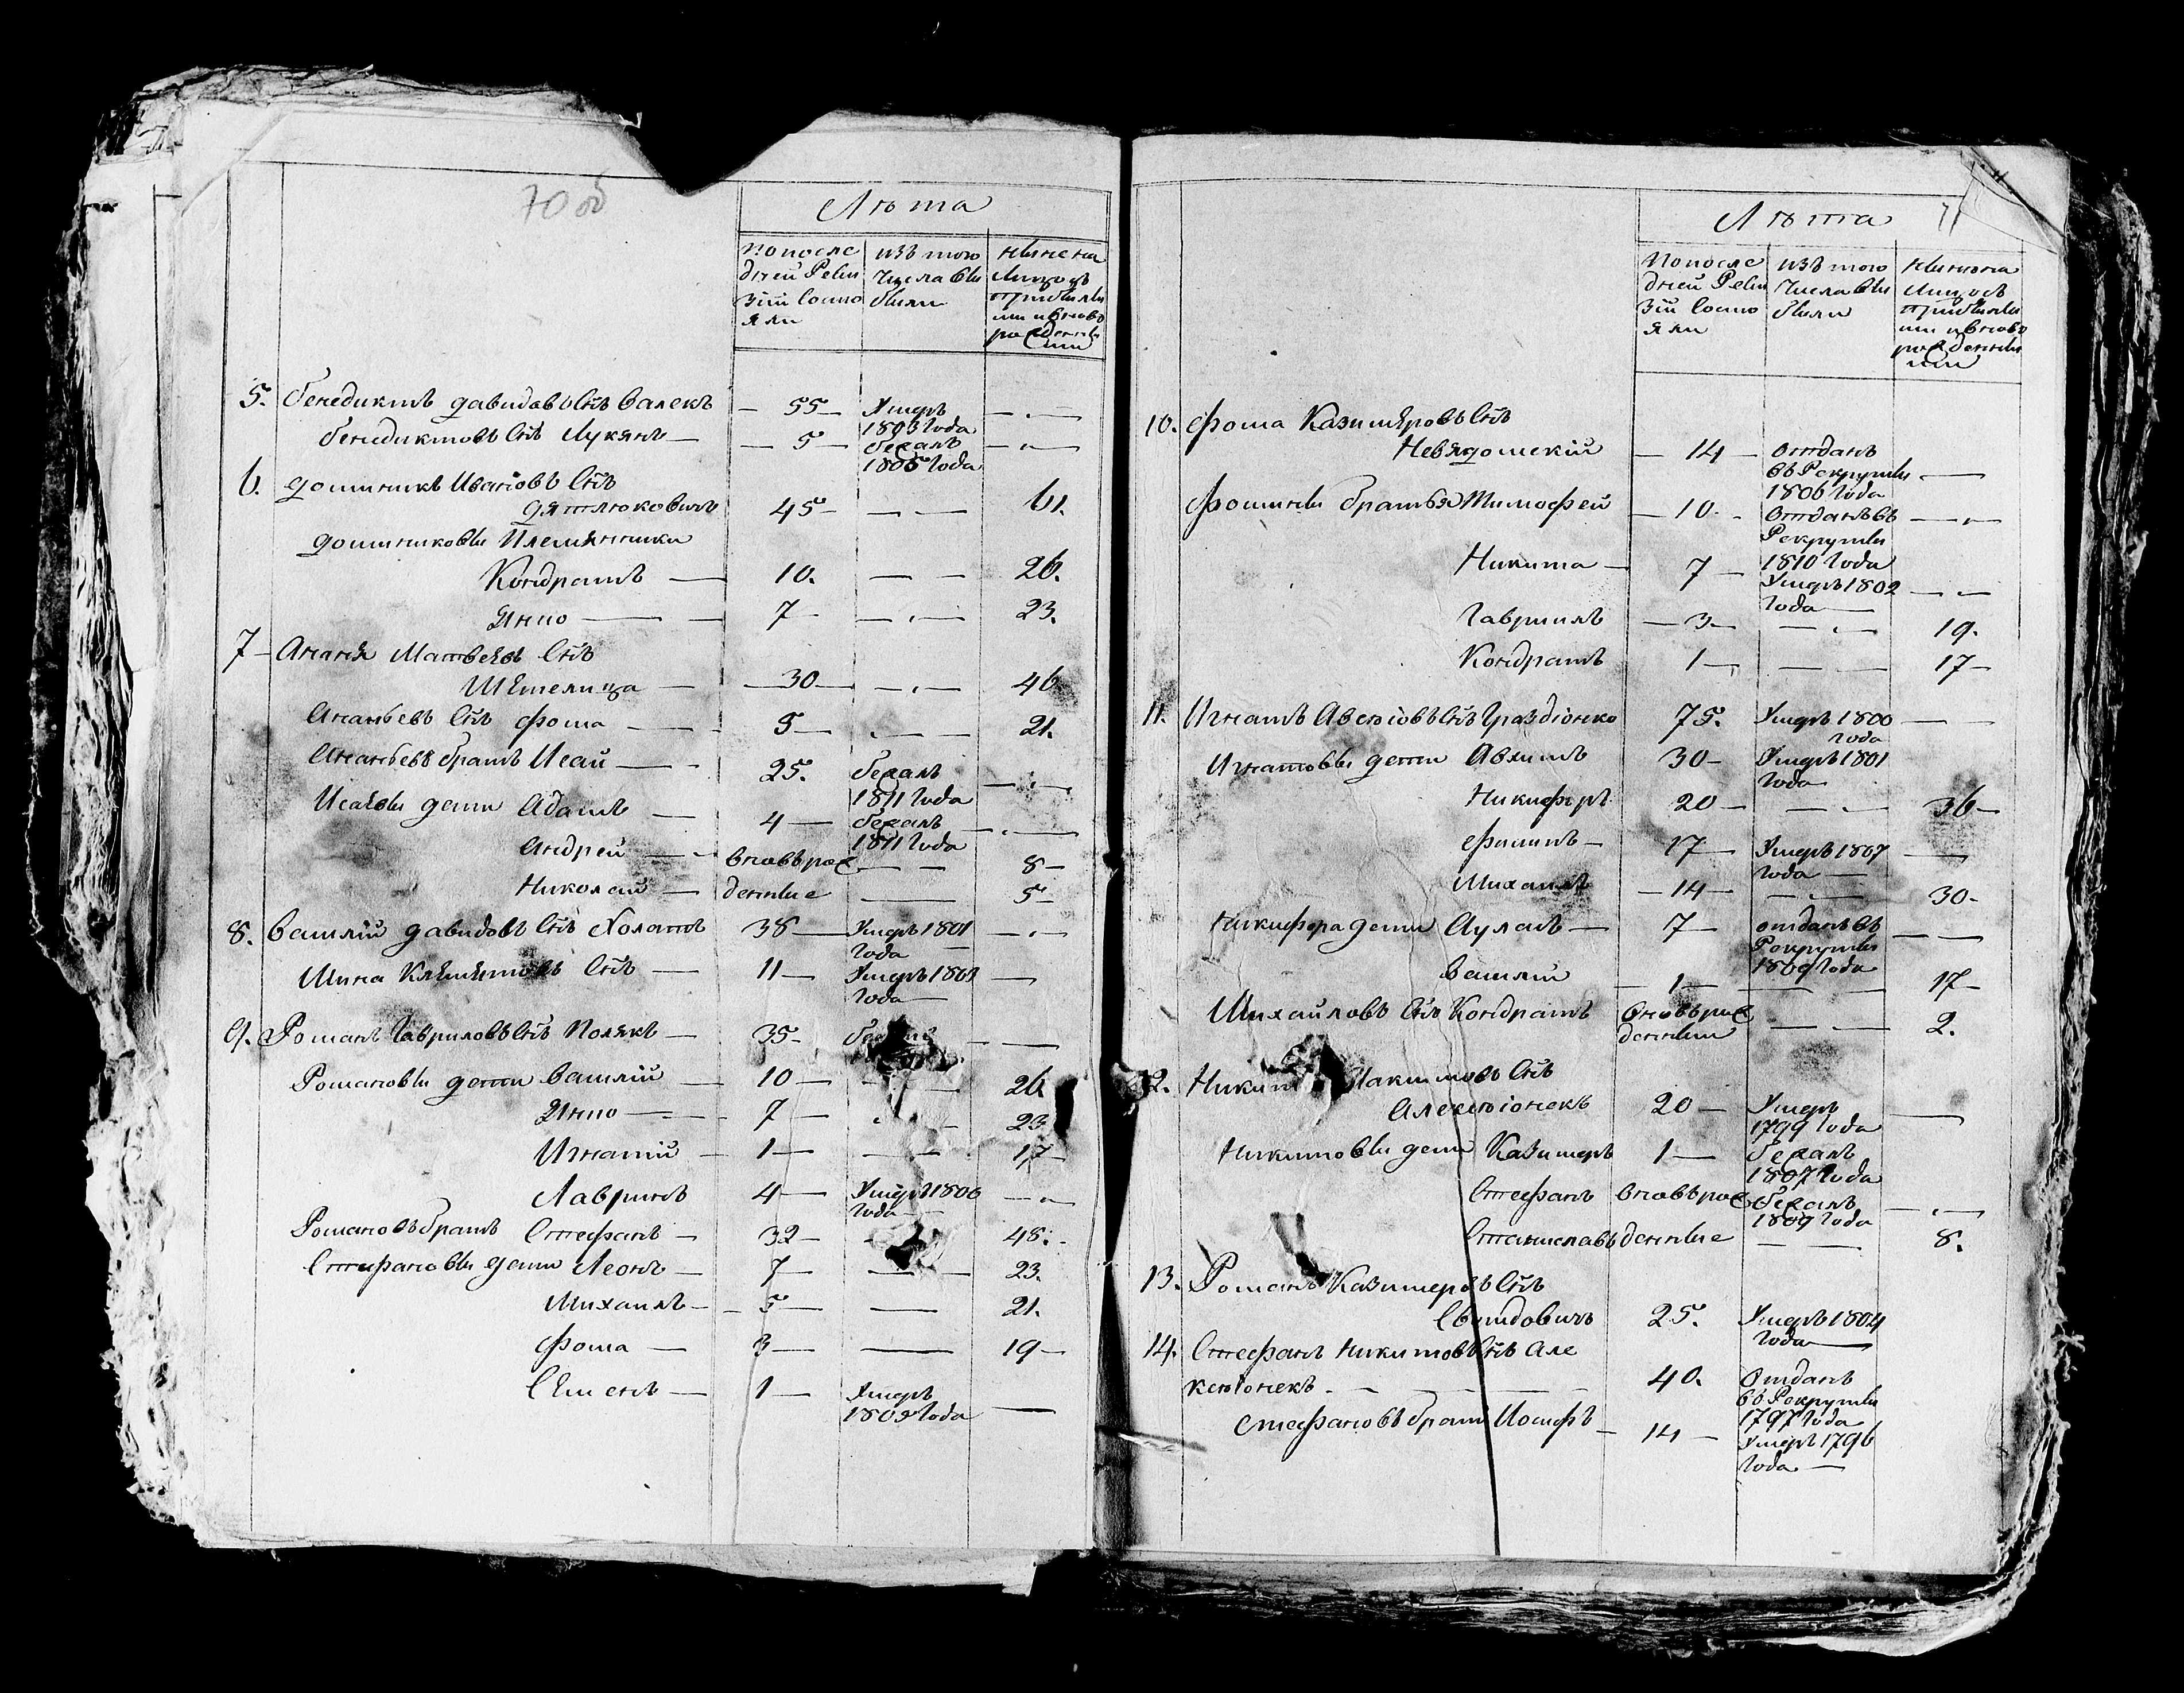 70 об
Лѣта
По после
дней Реви
зіи состо
яли
изъ того
числа вы
были
ныне на
лицо съ
прибылы
ми и вново
рожденны
ми
5. Бенедиктъ Давидовъ Снъ Валекъ — 55 — Умеръ — —
1803 Года
Бенедиктовъ Снъ Лукянъ — 5 — бежалъ — —
1805 Года
6. Доминикъ Ивановъ Снъ
Дятлюковичъ 45 — — — 61.
Доминиковы Племянники
Кондратъ — 10. — — 26.
Янко — 7 — — — 23.
7 — Ананія Матвеевъ Снъ
Шемелица — 30 — — — 46
Ананьевъ Снъ Фома — 5 — — — 21.
Ананьевъ братъ Исай — 25. бежалъ — —
1811 Года
Исаевы дети Адамъ — 4 — бежалъ — —
1811 Года
Андрей — вновърож — — 8 —
Николай — денные — 5 —
8. Василій Давидовъ Снъ Холамъ 38 — Умеръ 1801 — —
Года
Мина Клеметовъ Снъ — 11 — Умеръ 1801 —
Года —
9. Романъ Гавриловъ Снъ Полякъ — 35 — — —
Романовы дети Василій — 10 — — — 26
Янко — 7 — — 23
Игнатій — 1 — — — 17 —
Лавринъ 4 — Умеръ 1806 — —
Года —
Романовъ братъ Стефанъ — 32 — — 48.
Стефановы дети Леонъ — 7 — — 23.
Михаилъ — 5 — — 21.
Фома — 3 — — 19 —
Семенъ — 1 — Умеръ —
1802 Года
71
Лѣта
По после
дней Реви
зіи состо
яли
изъ того
числа вы
были
ныне на
лицо съ
прибылы
ми и вново
рожденны
ми
10. Фома Казимеровъ Снъ
Невядомскій — 14 — отданъ —
въ Рекруты
1806 Года
Фомины братья Тимофей — 10. — Отданъ въ — —
Рекруты
1810 Года
Никита — 7 — Умеръ 1802 — —
Года —
Гаврила — 3 — — — 19.
Кондратъ 1 — — — 17 —
11. Игнатъ Авсюовъ Снъ 75. Умеръ 1800 — —
Года
Игнатовы дети Авхимъ 30 — Умеръ 1801
Года
Никифоръ 20 — — — 36 —
Филипъ — 17 — Умеръ 1807 —
Года —
Михаилъ — 14 — — — 30 —
Никифора дети — 7 — отданъ въ — —
Рекруты
1809 Года
Василій — 1 — — — 17 —
Михайловъ Снъ Кондратъ вновърож
денный — — 2.
12. Никит Макимовъ Снъ
Алексіонекъ 20 — Умеръ —
1799 Года
Никитовы дети Казимеръ 1 — бежалъ
1807 Года
Стефанъ вновърож бежалъ — —
1809 Года
Станиславъ денные — — 8.
13. Романъ Казимеровъ Снъ
Свитдовичъ 25. Умеръ 1804
Года —
14. Стефанъ Никитовъ Снъ Але
ксюонекъ — — 40. Отданъ
въ Рекруты
1797 Года
Стефановъ братъ Иосифъ — 14 — Умеръ 1796
Года —